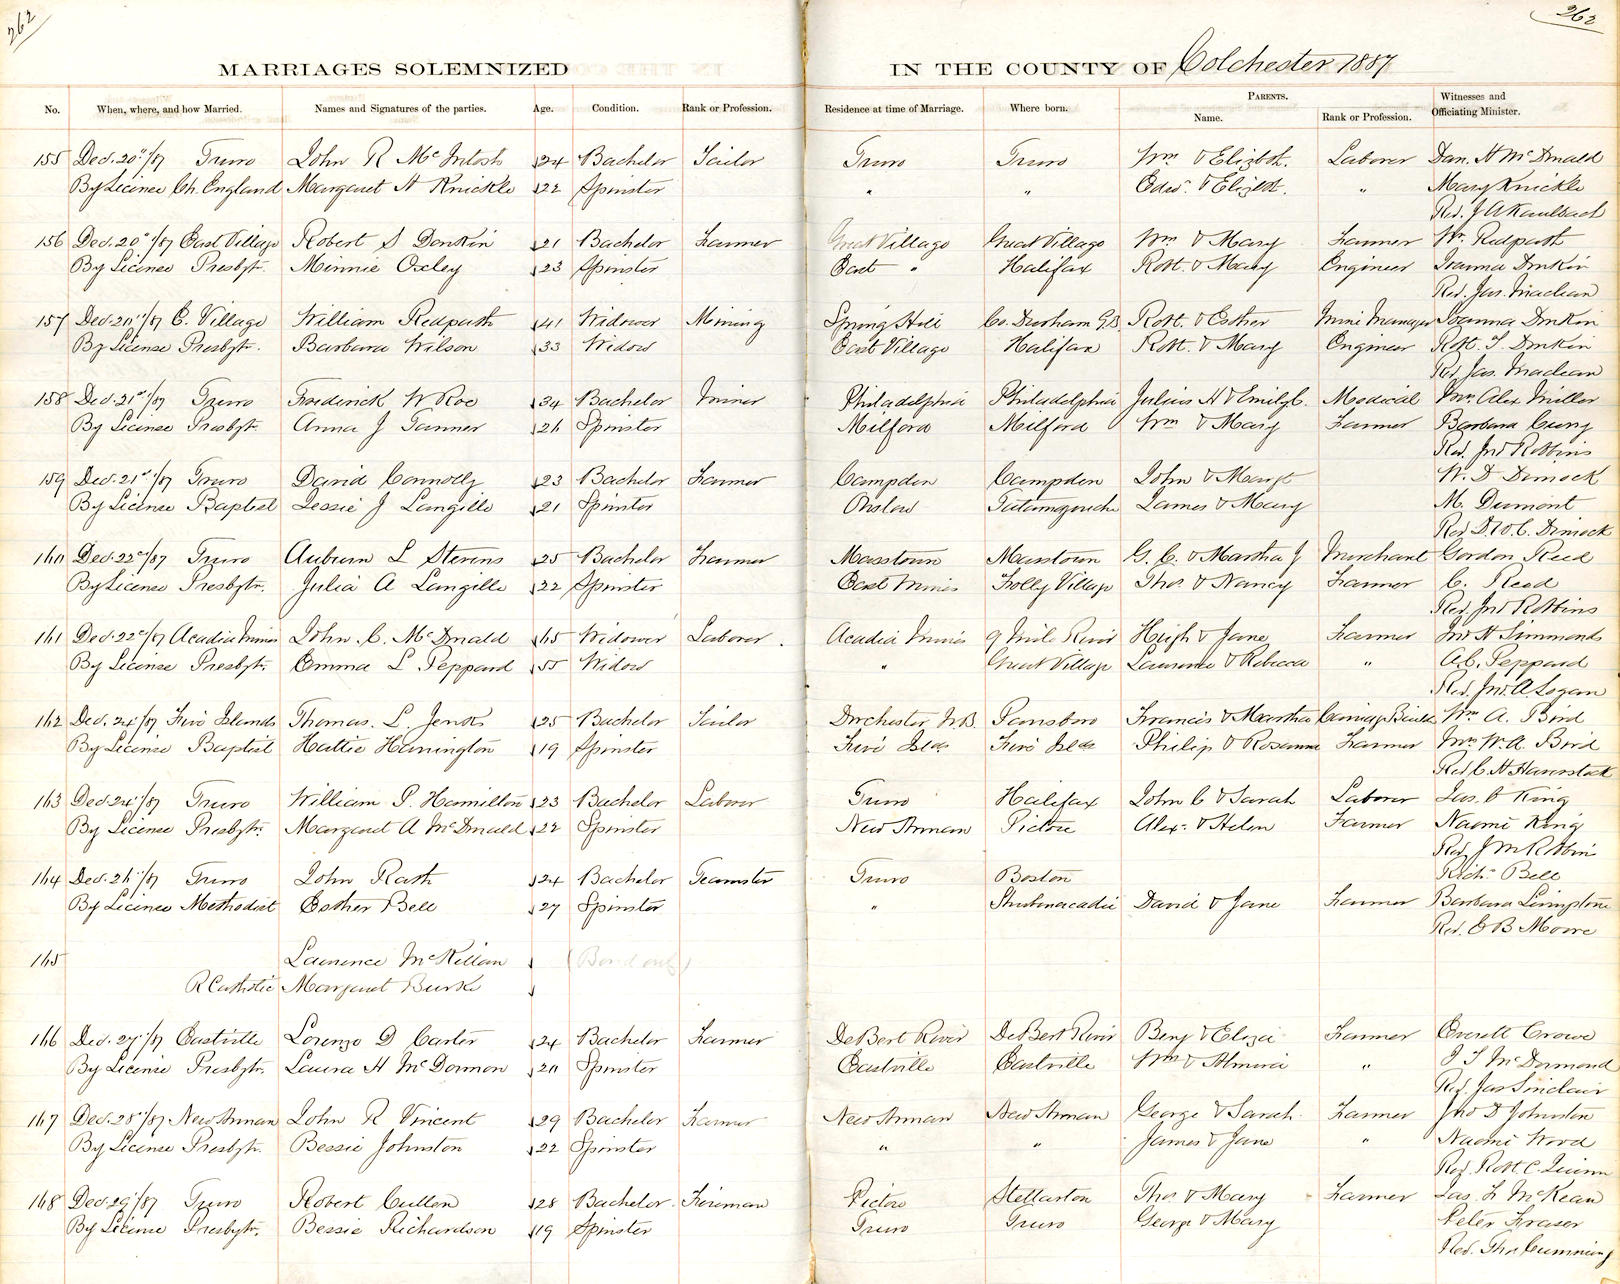 262
262
MARRIAGES SOLEMNIZED IN THE COUNTY OF Colchester 1887
No. When, where, and how Married. Names and Signatures of the parties. Age. Condition. Rank or Profession. Residence at time of Marriage. Where born. PARENTS. Name. Rank or Profession. Witnesses and Officiating Minister.
155 Dec. 20"/87 Truro John R McIntosh 24 Bachelor Tailor Truro Truro Wm & Elizbth. Laborer Dan. H McDonald
By License Ch. England Margaret H Knickle 22 Spinster " " Edwd. & Elizbth. " Mary Knickle
Rev. J A Kaulbach
156 Dec. 20"/87 East Village Robert S Donkin 21 Bachelor Farmer Great Village Great Village Wm & Mary Farmer Wm Redpath
By License Presbytn. Minnie Oxley 23 Spinster East " Halifax Robt. & Mary Engineer Joanna Donkin
Rev. Jas. Maclean
157 Dec. 20"/87 E. Village William Redpath 41 Widower Mining Spring Hill Co. Durham G.B. Robt. & Esther Mine Manager Joanna Donkin
By License Presbytr. Barbara Wilson 33 Widow East Village Halifax Robt. & Mary Engineer Robt. S. Donkin
Rev. Jas. Maclean
158 Dec. 21st/87 Truro Frederick W Roe 34 Bachelor Miner Philadelphia Philadelphia Julius H & Emily C. Medical Mrs Alex Miller
By License Presbytr. Anna J Tanner 26 Spinster Milford Milford Wm & Mary Farmer Barbara Curry
Rev. Jno Robbins
159 Dec. 21st/87 Truro David Connolly 23 Bachelor Farmer Campden Campden John & Margt W. D Dimock
By License Baptist Jessie J Langille 21 Spinster Onslow Tatamagouche James & Mary M. Dumont
Rev. D. W. C. Dimock
160 Dec. 22d/87 Truro Auburn L Stevens 25 Bachelor Farmer Masstown Masstown G. C. & Martha J Merchant Gordon Reed
By License Presbytr. Julia A Langille 22 Spinster East Mines Folly Village Thos. & Nancy Farmer C. Reed
Rev. Jno Robbins
161 Dec. 22d/87 Acadia Mines John C. McDonald 65 Widower Laborer. Acadia Mines 9 Mile River Hugh & Jane Farmer Jno H Simmonds
By License Presbytr. Emma L Peppard 55 Widow " Great Village Lawrence & Rebecca " A. C. Peppard
Rev. Jno. A. Logan
162 Dec. 24"/87 Five Islands Thomas. L. Jenks 25 Bachelor Tailor Dorchester N.B. Parrsboro Francis & Martha Carriage Builder Wm A. Bird
By License Baptist Hattie Harrington 19 Spinster Five Islds Five Islds Philip & Rosanna Farmer Mrs W. A. Bird
Rev C. H Haverstock
163 Dec. 24"/87 Truro William P. Hamilton 23 Bachelor Laborer Truro Halifax John C & Sarah Laborer Jas. O King
By License Presbytr. Margaret A McDonald 22 Spinster New Annan Pictou Alexr. & Helen Farmer Naomi King
Rev. J M Robbin
164 Dec. 26"/87 Truro John Rath 24 Bachelor Teamster Truro Boston Richd. Bell
By License Methodist Esther Bell 27 Spinster " Shubenacadie David & Jane Farmer Barbara Livingstone
Rev. E B Moore
165 Lawrence McKillan (Bond only)
R Catholic Margaret Burke
166 Dec. 27"/87 Eastville Lorenzo D Carter 24 Bachelor Farmer DeBert River DeBert River Benj & Eliza Farmer Everett Crowe
By License Presbytr. Laura H McDorman 20 Spinster Eastville Eastville Wm & Almira " J S McDormand
Rev. Jas Sinclair
167 Dec. 28"/87 New Annan John R Vincent 29 Bachelor Farmer New Annan New Annan George & Sarah Farmer Jno D Johnston
By License Presbytr. Bessie Johnston 22 Spinster " " James & Jane " Naomi Wood
Rev. Robt. C. Quinn
168 Dec. 29"/87 Truro Robert Cullen 28 Bachelor. Fireman Pictou Stellarton Thos. & Mary Farmer Jas. F McKean
By License Presbytr. Bessie Richardson 19 Spinster Truro Truro George & Mary Peter Fraser
Rev. Thos Cumming